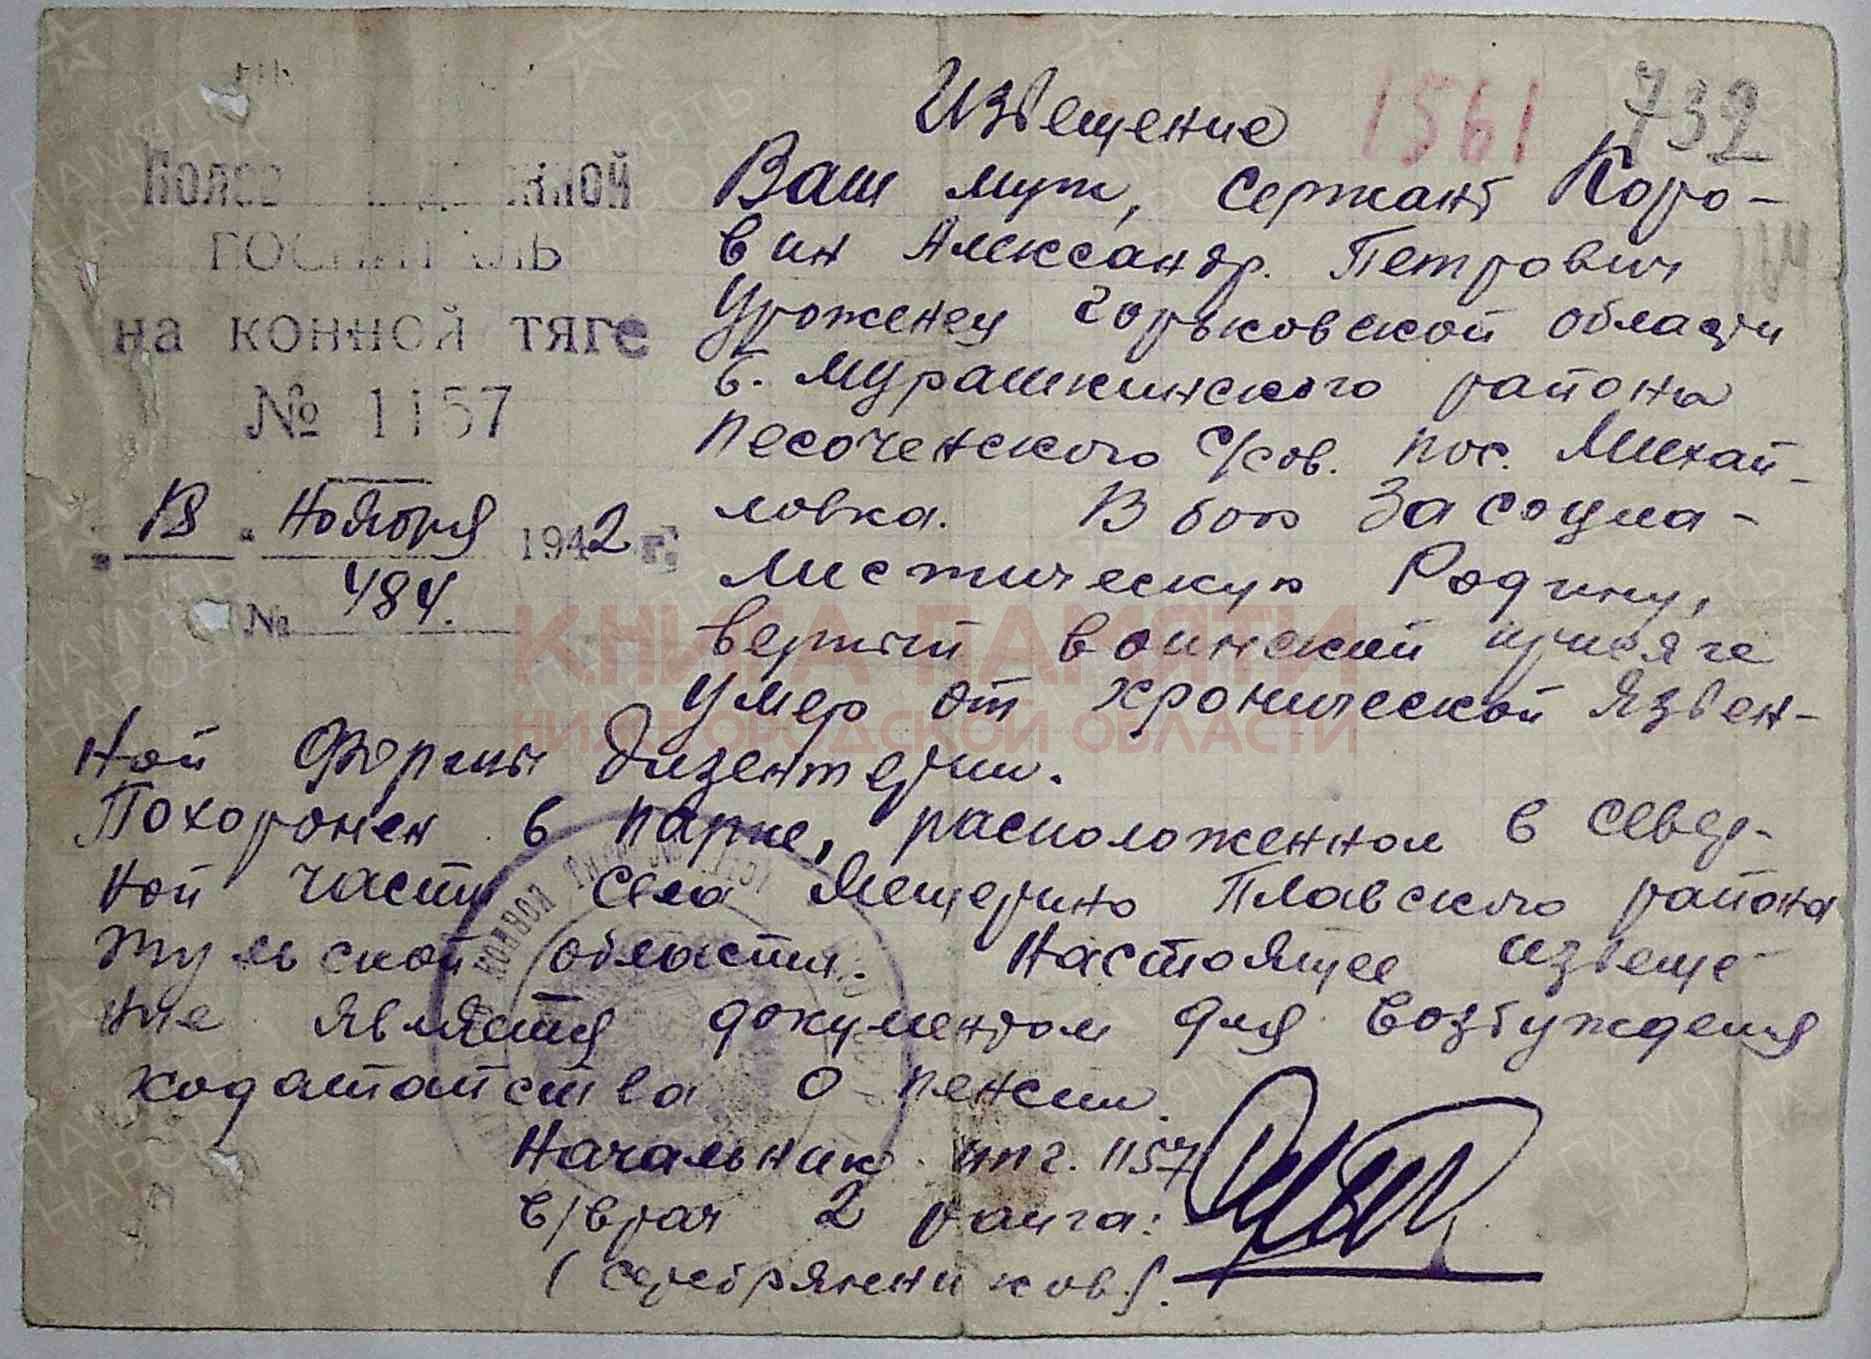 Извещение
1561
732
Ваш муж, сержант Коро-
вин Александр. Петрович
Уроженец Горьковской области
Б. Мурашкинского района
Песоченского с/сов. пос. Михай-
ловка. В бою за социа-
листическую Родину,
верный воинской присяге
умер от хронической язвен-
ной формы дизентерии.
Похоронен в парке, расположенном в север-
ной части села Мещерино Плавского района
Тульской области. Настоящее извеще-
ние является документом для возбуждения
ходатайства о пенсии.
Начальник ппг. 1157
в/врач 2 ранга:
(Серебрянников).
ГОСПИТАЛЬ
на конной тяге
№ 1157
Ноября 1942 г.
№ 484.
КНИГА ПАМЯТИ
НИЖЕГОРОДСКОЙ ОБЛАСТИ
ПАМЯТЬ
НАРОДА